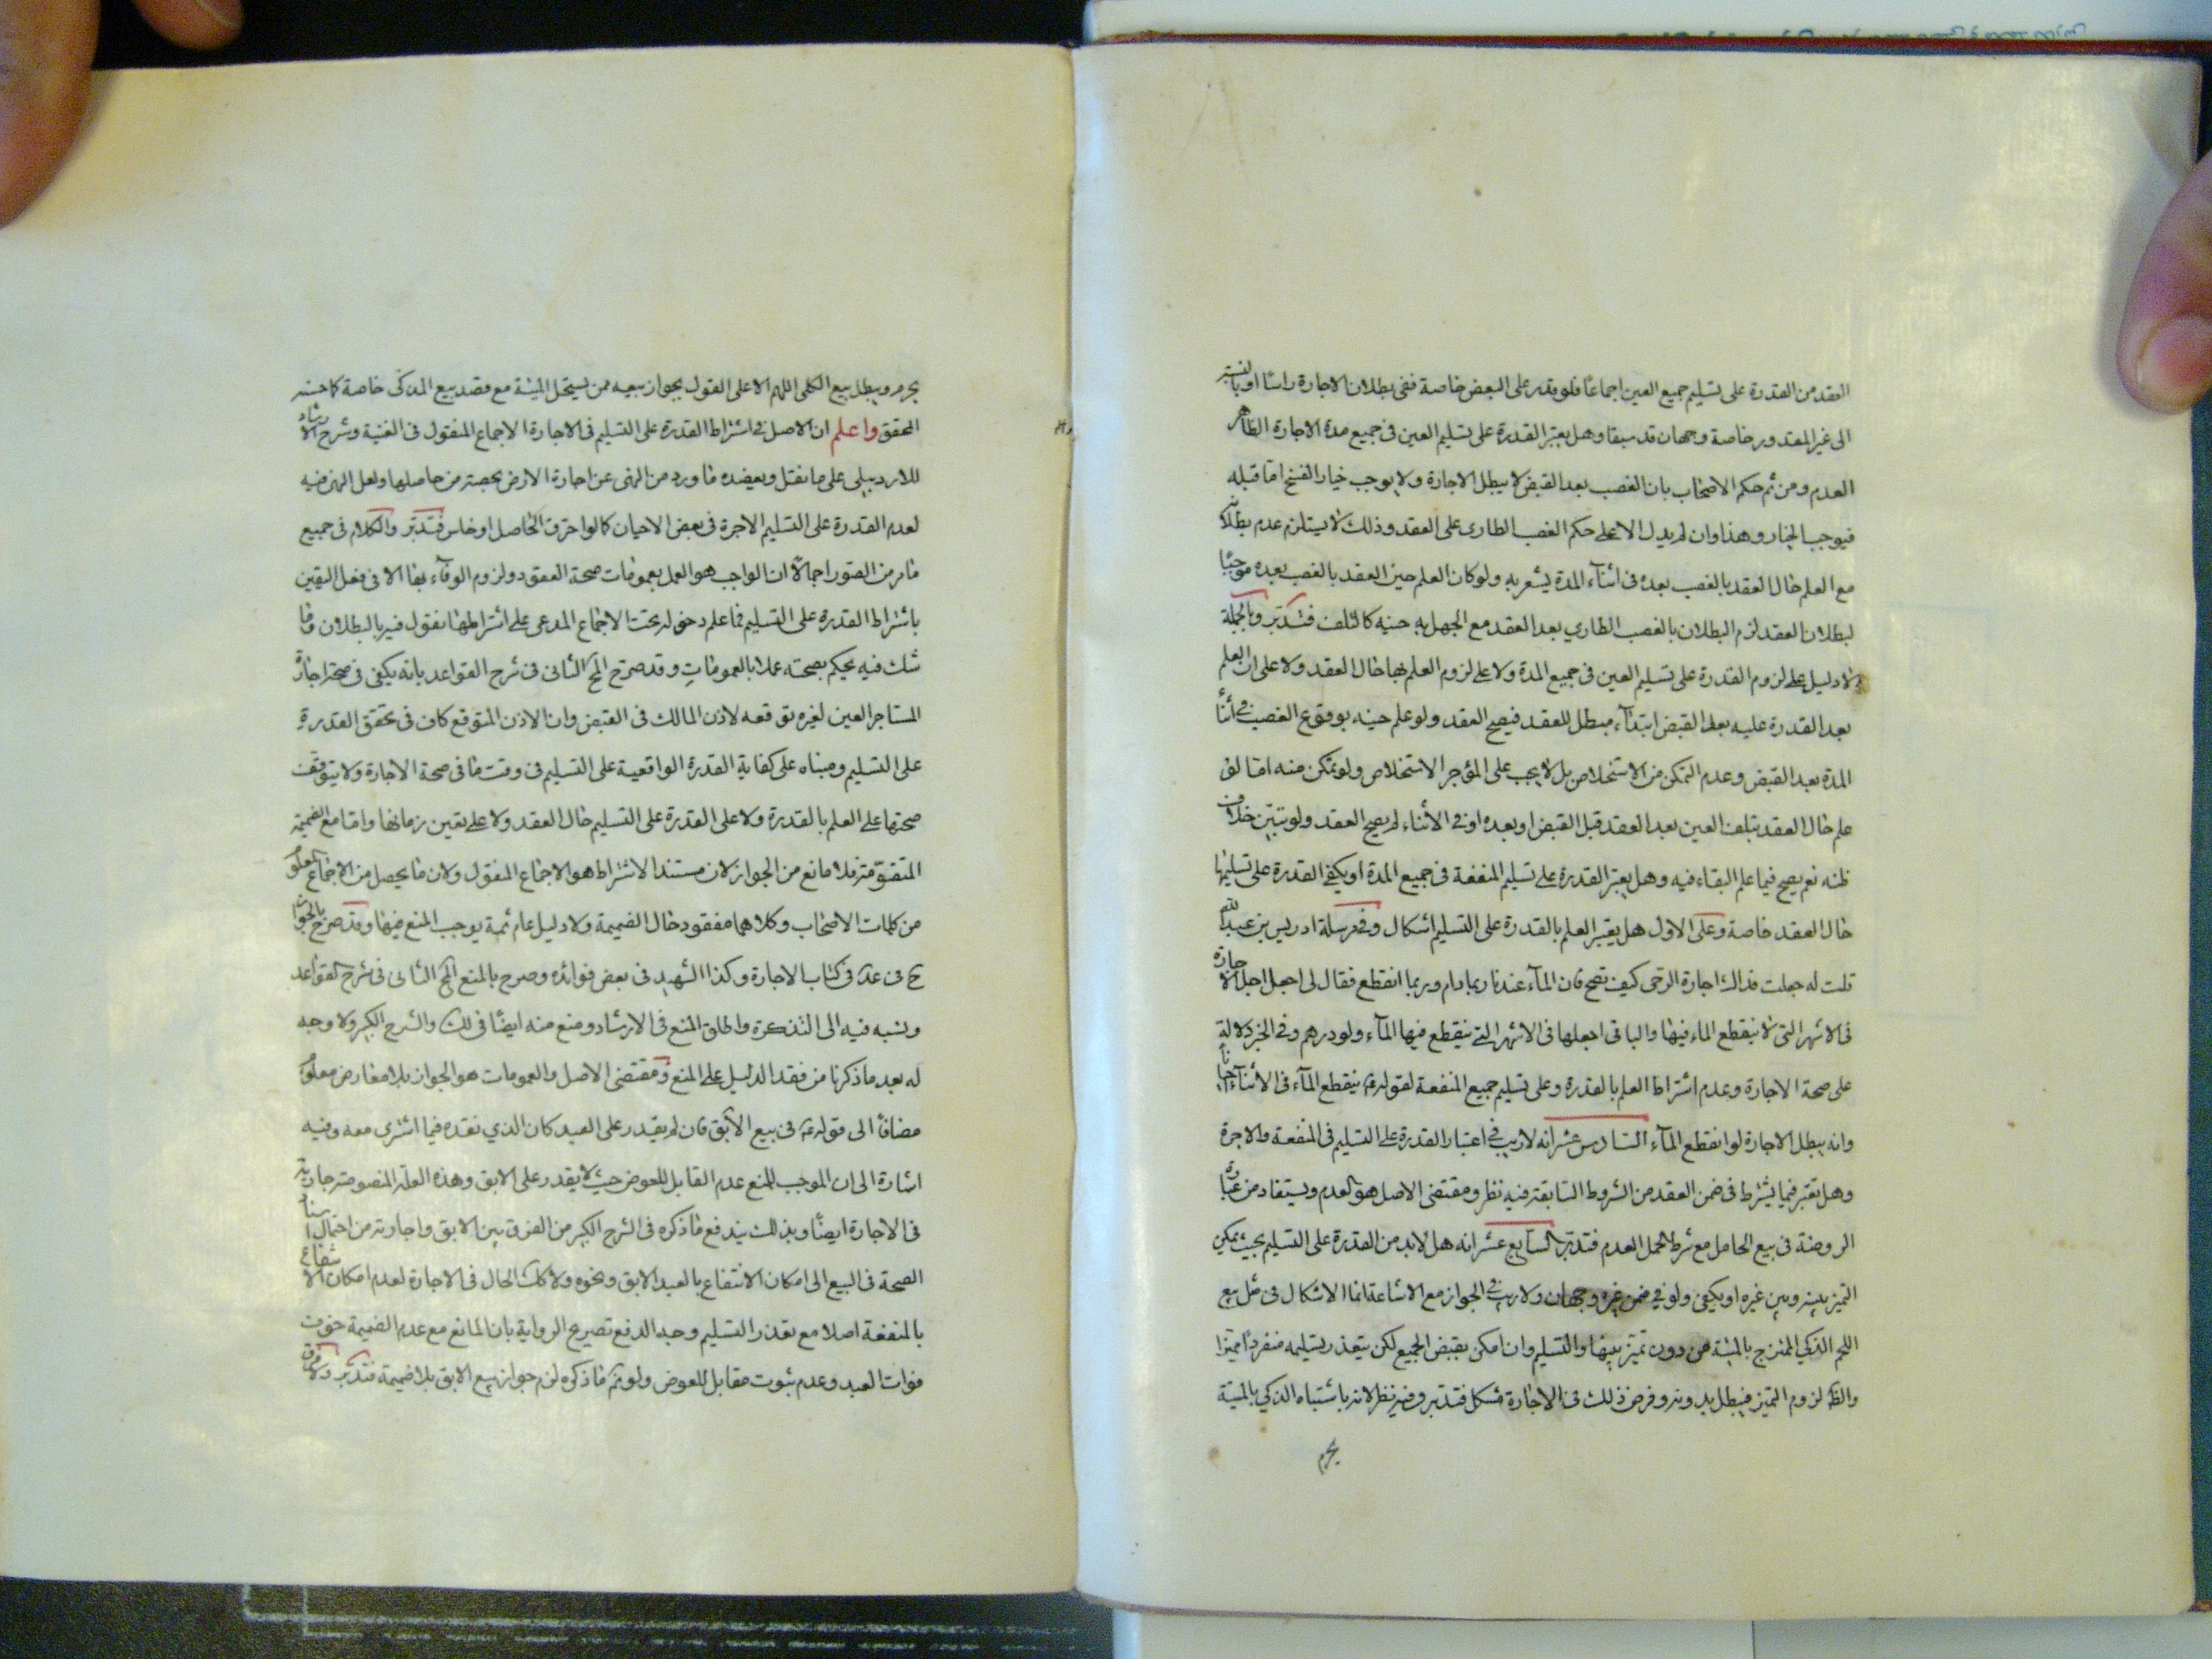 العقد من القدرة على تسليم جميع العين اجماعًا فلو قدر على البعض خاصة ففى بطلان الاجارة راسًا او بالنسبة
الى غير المقدور خاصة وجهان قد سبقا وهل يعتبر القدرة على تسليم العين فى جميع مدة الاجارة الظاهر
العدم ومن ثم حكم الاصحاب بان الغصب بعد القبض لا يبطل الاجارة ولا يوجب خيار الفسخ امّا قبله
فيوجب الخيار وهذا وان لم يدل الا على حكم الغصب الطارى على العقد وذلك لا يستلزم عدم بطلانه
مع العلم حال العقد بالغصب بعده فى اثنآء المدة يشعر به ولو كان العلم حين العقد بالغصب بعده موجبًا
لبطلان العقد لزم البطلان بالغصب الطاري بعد العقد مع الجهل به حينه كالتلف فتدبّر وبالجملة
لا دليل على لزوم القدرة على تسليم العين فى جميع المدة ولا على لزوم العلم بها حال العقد ولا على ان العلم
بعدم القدرة عليه بعد القبض ابتدآء مبطل للعقد فيصح العقد ولو علم حينه بوقوع الغصب في أثنأ
المدة بعد القبض وعدم التمكن من الاستخلاص بل لا يجب على المؤجر الاستخلاص ولو تمكن منه امّا لو
علم حال العقد بتلف العين بعد العقد قبل القبض او بعده او في الأثناء لم يصح العقد ولو تبيّن خلاف
ظنه نعم يصح فيما علم البقاء فيه وهل يعتبر القدرة على تسليم المنفعة فى جميع المدة او يكفى القدرة على تسليمها
حال العقد خاصة وعلى الاول هل يعتبر العلم بالقدرة على التسليم اشكال وفى مرسلة ادريس بن عبد الله
قلت له جعلت فداك اجارة الرحى كيف تصح فان المآء عندنا ربما دام وربما انقطع فقال لى اجعل اجل الاجارة
فى الاشهر التى لا ينقطع الماء فيها والباقى اجعلها فى الاشهر التى ينقطع فيها المآء ولو درهم وفى الخبر دلالة
على صحة الاجارة وعدم اشتراط العلم بالقدرة وعلى تسليم جميع المنفعة لقوله ينقطع المآء فى الأثنآء
وانه يبطل الاجارة لو انقطع المآء السادس عشر انه لا ريب في اعتبار القدرة على التسليم فى المنفعة والاجرة
وهل تعتبر فيما يشترط فى ضمن العقد من الشروط السابقة فيه نظر ومقتضى الاصل هو العدم ويستفاد من عبارة
الروضة فى بيع الحامل مع شرط الحمل العدم فتدبّر السابع عشر انه هل لا بد من القدرة على التسليم بحيث يمكن
التميز بينه وبين غيره او يكفى ولو في ضمن غيره وجهان ولا ريب في الجواز مع الاشاعة انما الاشكال فى مثل بيع
اللحم الذكي الممتزج بالميتة من دون تميّز بينها والتسليم وان امكن بقبض الجميع لكن يتعذر تسليمه منفردًا متميزا
والظ لزوم التميز فيبطل بدونه وفرض ذلك فى الاجارة مشكل فتدبّر وفيه نظر لانه باشتباه الذكي بالميتة
يحرم
يحرم ويبطل بيع الكلى اللهم الا على القول بجواز بيعه ممن يستحل الميتة مع قصد بيع المذكّى خاصة كما حسنه
المحقق واعلم ان الاصل في اشتراط القدرة على التسليم فى الاجارة الاجماع المنقول فى الغنية وشرح الارشاد
للاردبيلى على ما نقل ويعضده ما ورد من النهى عن اجارة الارض بحصة من حاصلها ولعل النهى فيه
لعدم القدرة على التسليم الاجرة فى بعض الاحيان كما لو احترق الحاصل او خاس فتدبّر والكلام فى جميع
ما مر من الصّور اجمالًا ان الواجب هو العمل بعمومات صحة العقود ولزوم الوفآء بها الا فى فعل اليقين
باشتراط القدرة على التسليم فما علم دخوله تحت الاجماع المدعى على اشتراطها نقول فيه بالبطلان وما
شك فيه يحكم بصحته عملا بالعمومات وقد صرّح المح الثانى فى شرح القواعد بانه يكفى فى صحة اجازة
المستاجر العين لغيره توقعه لاذن المالك فى القبض وان الاذن المتوقع كاف فى تحقق القدرة
على التسليم ومبناه على كفاية القدرة الواقعية على التسليم فى وقت ما فى صحة الاجارة ولا يتوقف
صحتها على العلم بالقدرة ولا على القدرة على التسليم حال العقد ولا على تعين زمانها وامّا مع الضميمة
المتقوّمة فلا مانع من الجواز لان مستند الاشتراط هو الاجماع المنقول ولان ما يحصل من الاجماع المعلوم
من كلمات الاصحاب وكلاهما مفقود حال الضميمة ولا دليل عام ثمة يوجب المنع فيها وقد صرّح بالجواز
ح فى عد فى كتاب الاجارة وكذا الشهيد فى بعض فوائده وصرح بالمنع المح الثانى فى شرح القواعد
ونسبه فيه الى التذكرة واطلق المنع فى الارشاد ومنع منه ايضًا فى لك والشرح الكبير ولا وجه
له بعد ما ذكرنا من فقد الدليل على المنع ومقتضى الاصل والعمومات هو الجواز بلا معارض معلوم
مضافًا الى قوله فى بيع الآبق فان لم يقدر على العبد كان الذي نقده فيما اشترى معه وفيه
اشارة الى ان الموجب للمنع عدم القابل للعوض حيث لا يقدر على الابق وهذه العلّة المنصوصة جارية
فى الاجارة ايضًا وبذلك يندفع ما ذكره فى الشرح الكبير من الفرق بين الابق واجارته من احتمال استناد
الصحة فى البيع الى امكان الانتفاع بالعبد الابق ونحوه ولا كك الحال فى الاجارة لعدم امكان الانتفاع
بالمنفعة اصلا مع تعذر التسليم وجه الدفع تصريح الرواية بان المانع مع عدم الضميمة خوف
فوات العبد وعدم ثبوت مقابل للعوض ولو تمّ ما ذكره لزم جواز بيع الابق بلا ضميمة فتدبّر ولا فرق